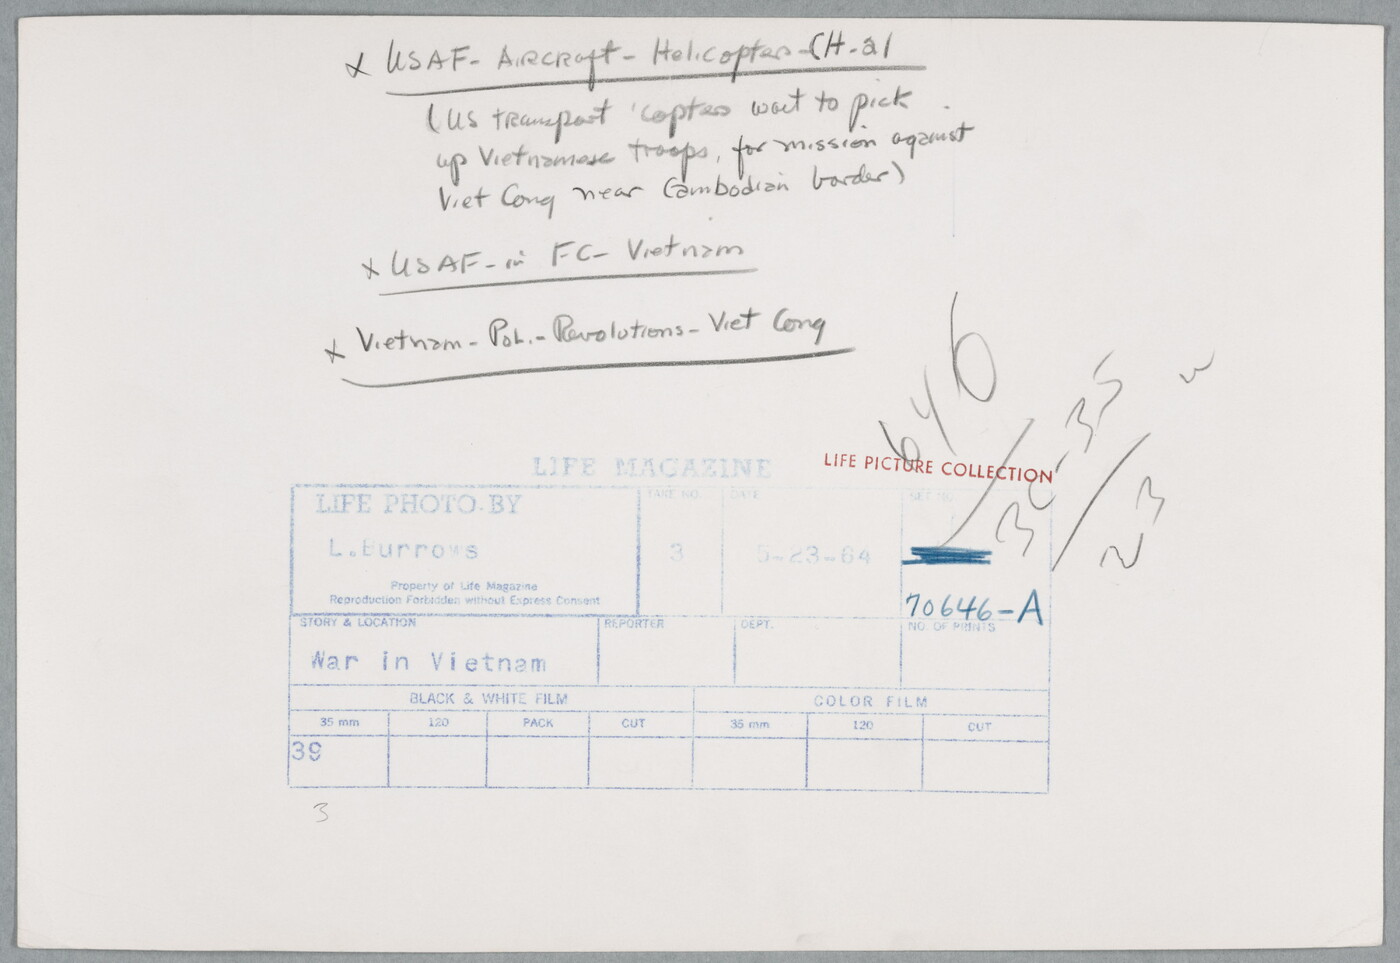 x USAF - Aircraft - Helicopters - CH-21
(US transport 'copters wait to pick
up Vietnamese troops, for mission against
Viet Cong near Cambodian border)
x USAF - in FC - Vietnam
x Vietnam - Pol. - Revolutions - Viet Cong
646
30-35
23
LIFE MAGAZINE
LIFE PICTURE COLLECTION
LIFE PHOTO BY
L.Burrows
Property of Life Magazine
Reproduction Forbidden without Express Consent
TAKE NO.
3
DATE
5-23-64
SET NO.
70646-A
STORY & LOCATION
War in Vietnam
REPORTER
DEPT.
NO. OF PRINTS
BLACK & WHITE FILM
COLOR FILM
35 mm 120 PACK CUT 35 mm 120 CUT
39
3